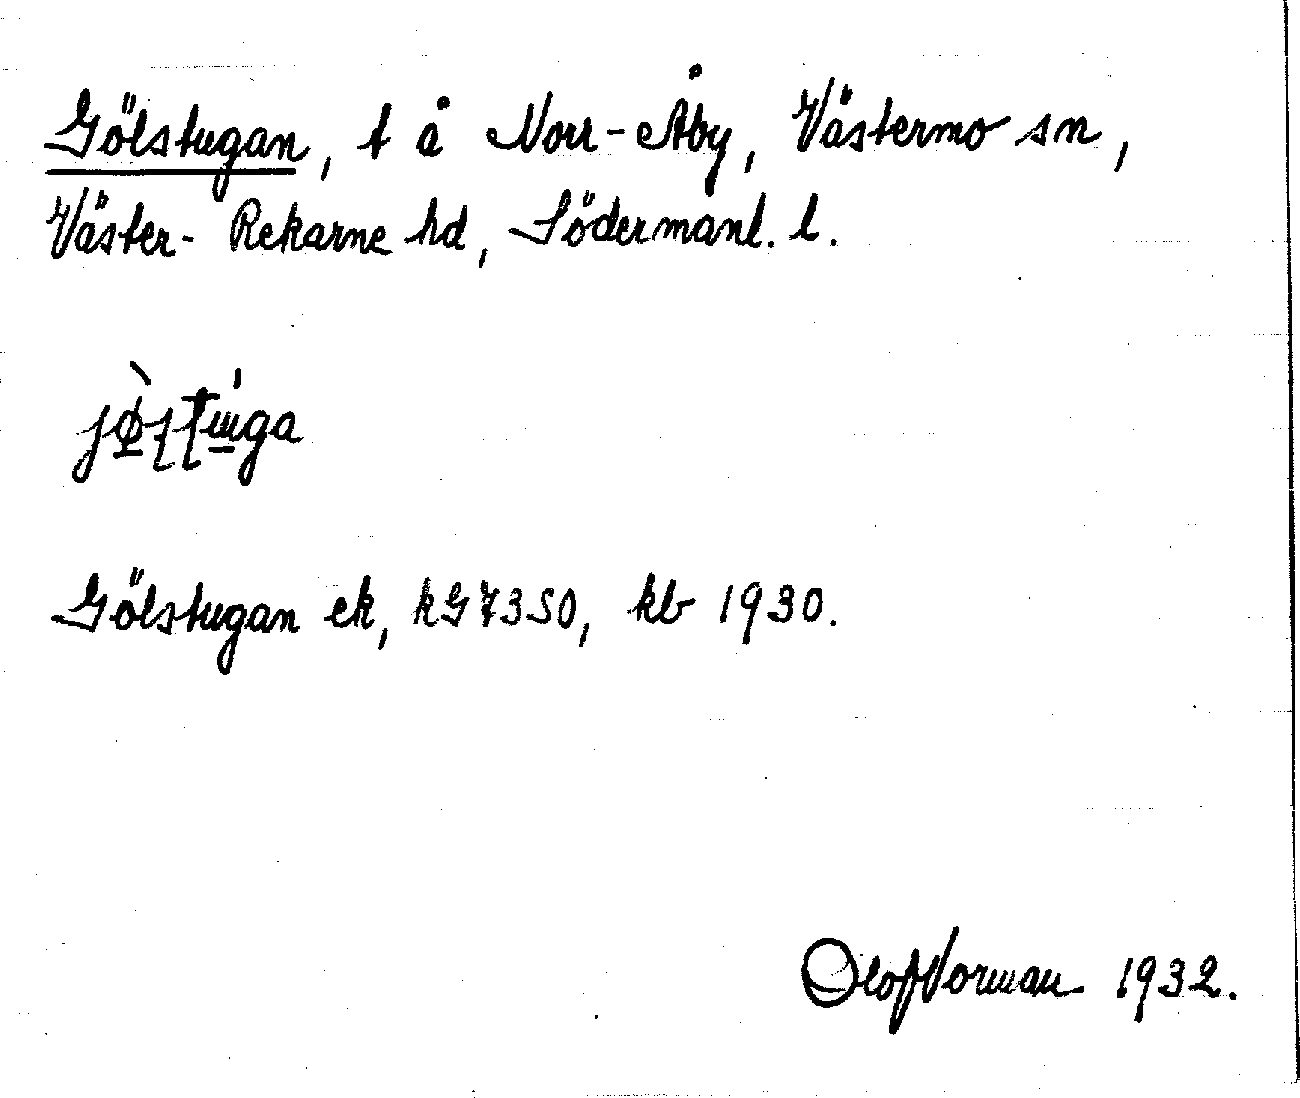 Gölstugan, t å Norr-Åby, Västermo sn,
Väster-Rekarne hd, Södermanl. l.
Gölstugan ek, kG7350, kb 1930.
Olof Norman 1932.